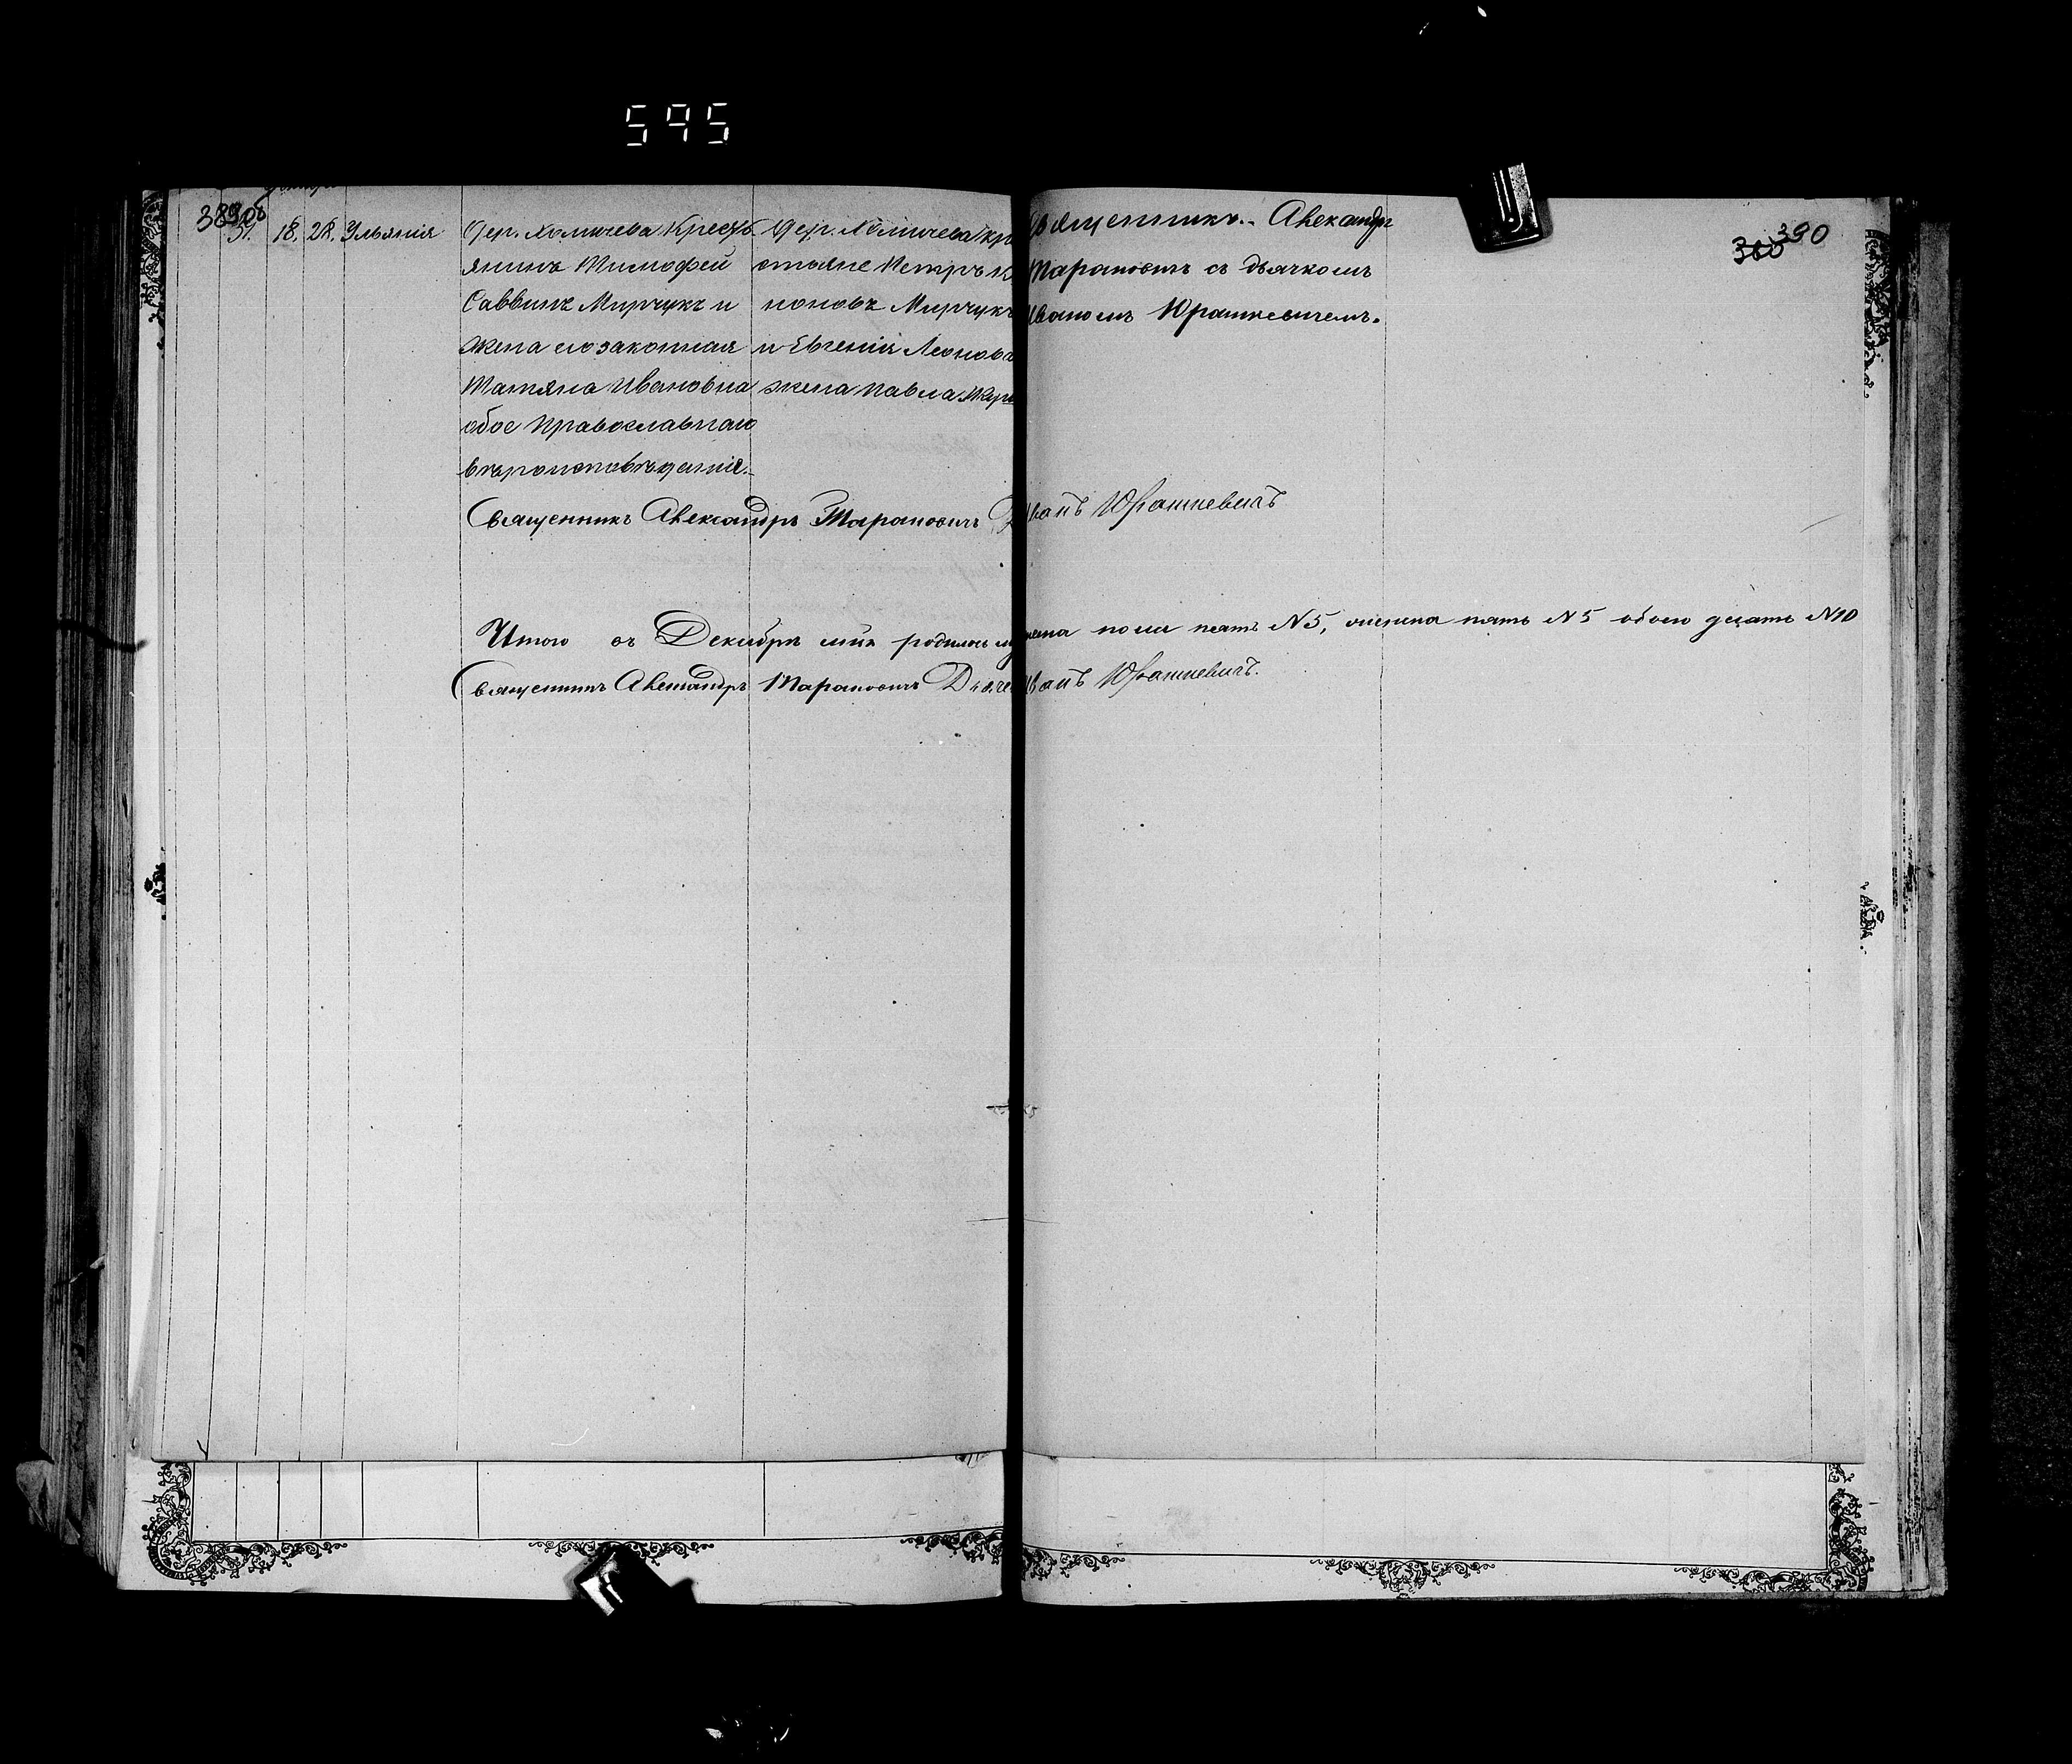 595
389об
390
380
Декабр
51. 18. 28. Ульянія
Дер. Хомичева Кресть-
янинъ Тимофей
Саввинъ Мирчукъ и
жена его законная
Татяна Ивановна
обое Православнаго
вѣроисповѣданія.
Дер. Хомичева кре
стьяне Петръ
ноновъ Мирчукъ
и Евгенія Леонов
жена Павла
Священникъ Александръ
Тарановичъ съ дьячкомъ
Иваномъ Юрашкевичемъ.
Священникъ Александръ Тарановичъ Иванъ Юрашкевичъ
Итого въ Декабрѣ мцѣ родилось мужеска пола пять №5, женска пять №5 обоего десять №10
Священникъ Александръ Тарановичъ Дьячек Иванъ Юрашкевичъ.